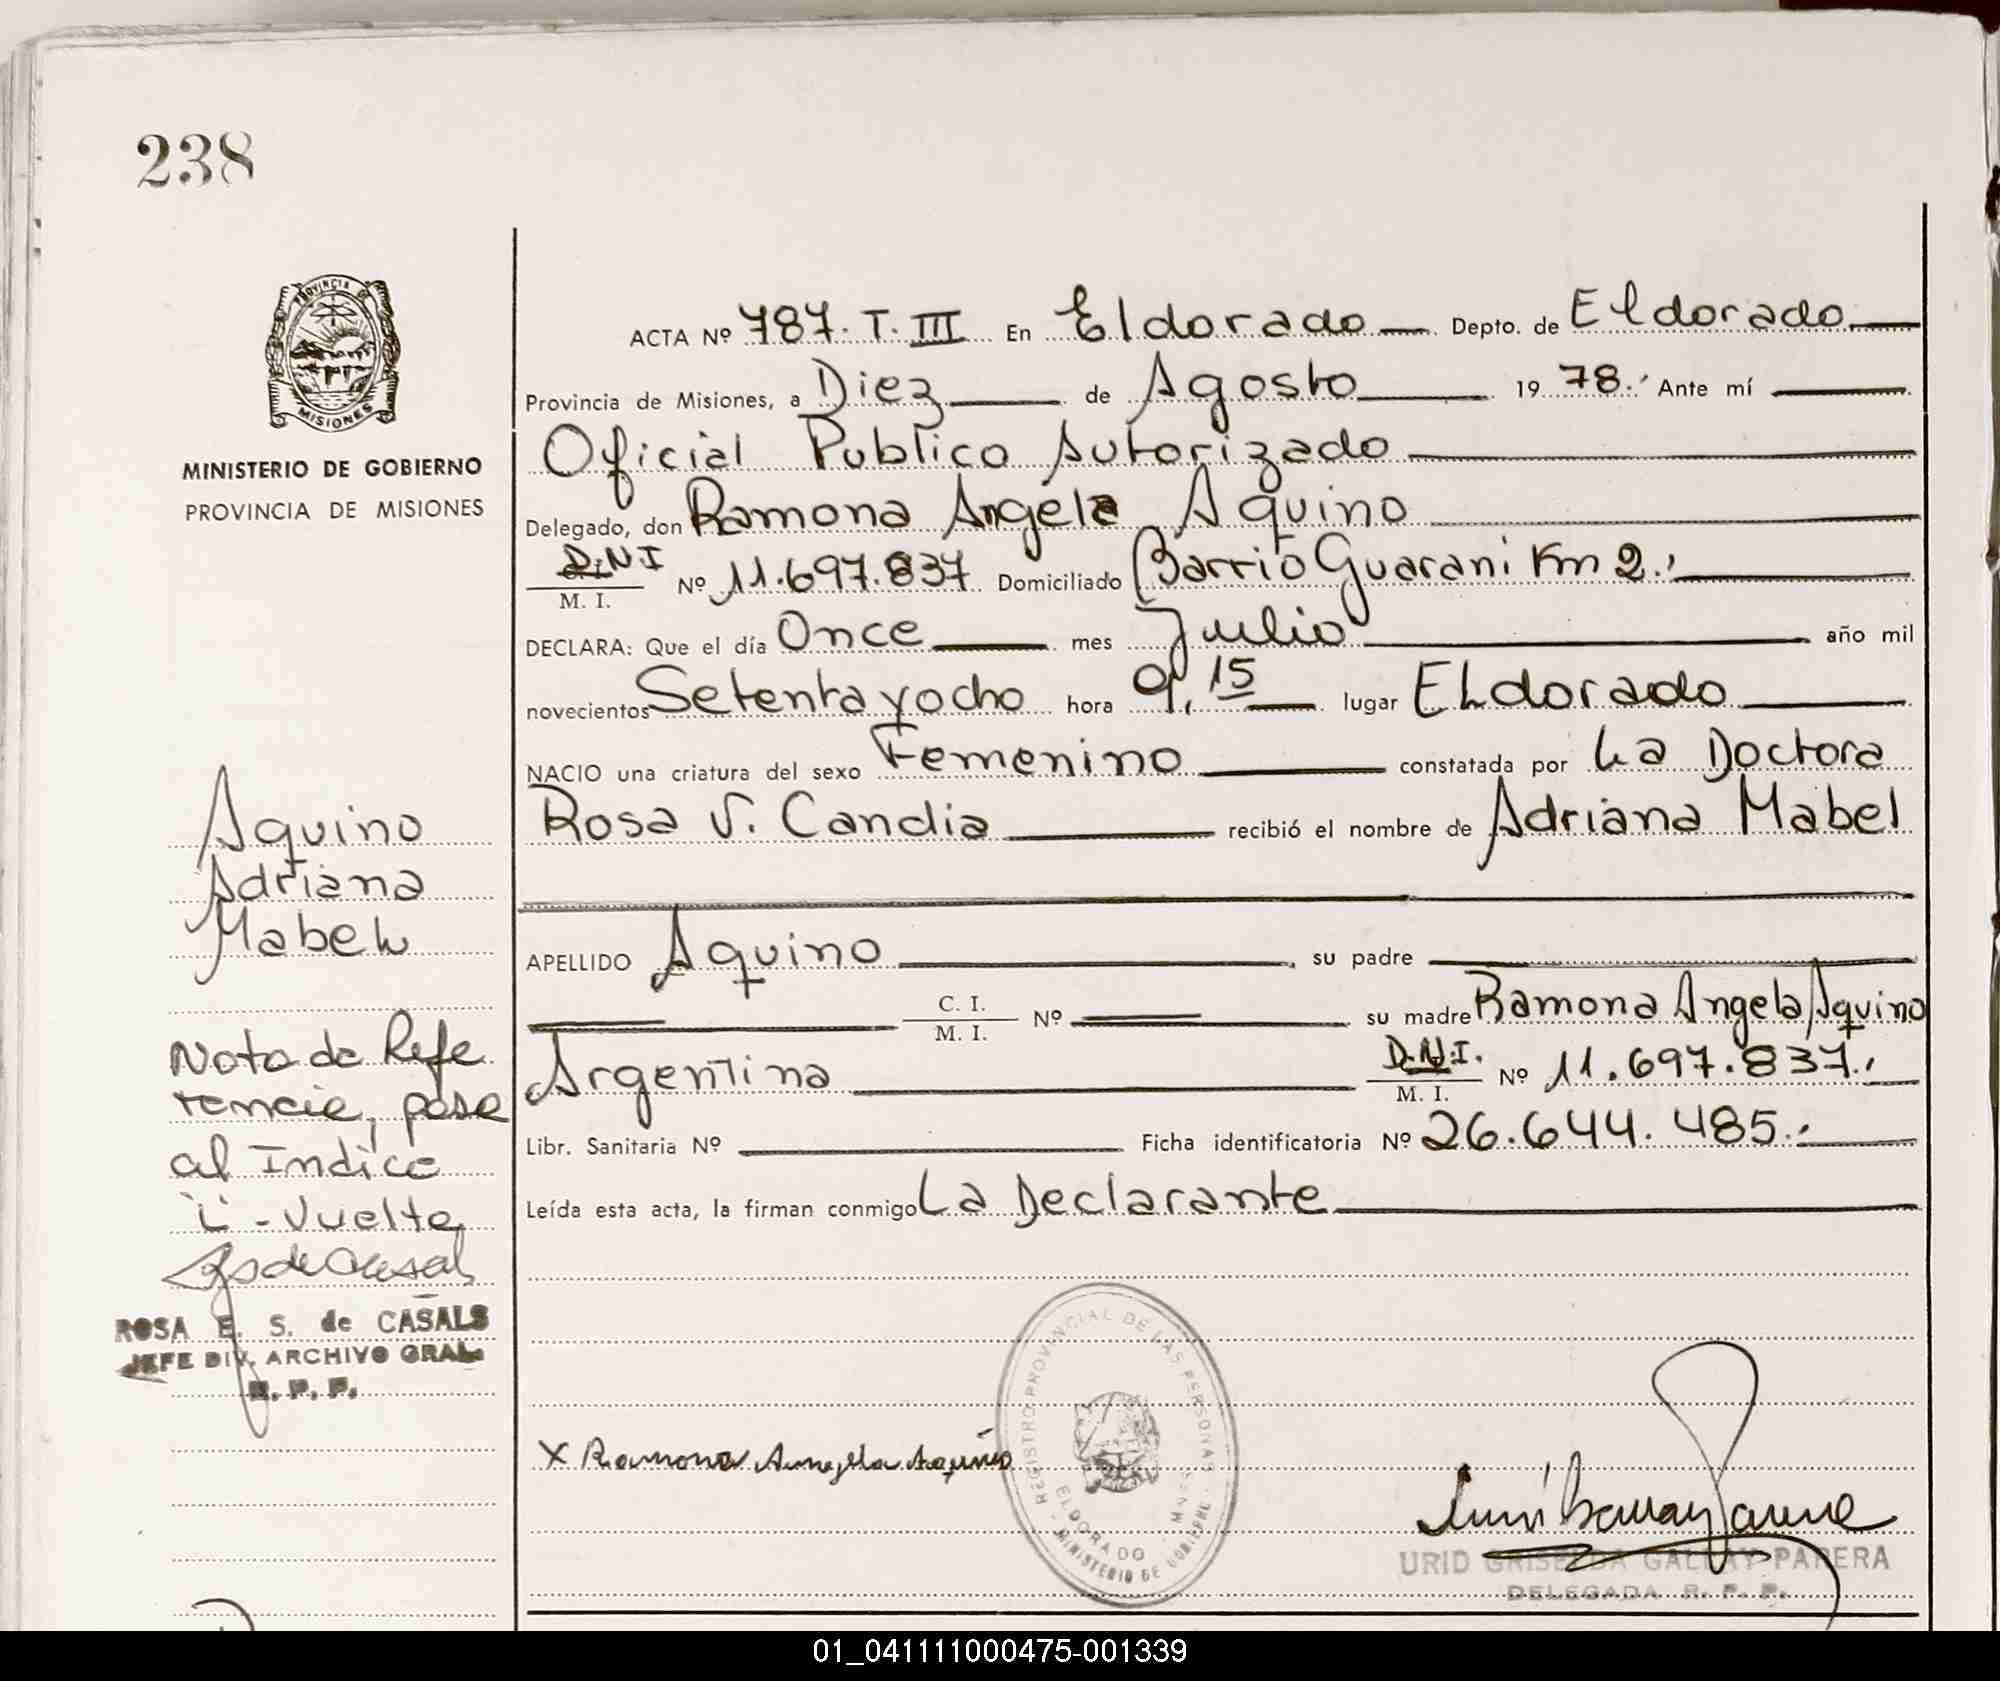 238
PROVINCIA DE
MISIONES
MINISTERIO DE GOBIERNO
PROVINCIA DE MISIONES
ACTA Nº 787. T. III En Eldorado Depto. de Eldorado
Provincia de Misiones, a Diez de Agosto 1978. Ante mí
Oficial Publico Autorizado
Delegado, don Ramona Angela Aquino
D.N.I
M. I. Nº 11.697.837 Domiciliado Barrio Guarani Km 2.
DECLARA: Que el día Once mes Julio año mil
novecientos Setenta y ocho hora 9,15 lugar ELdorado
NACIO una criatura del sexo Femenino constatada por La Doctora
Rosa V. Candia recibió el nombre de Adriana Mabel
APELLIDO Aquino su padre
C. I.
M. I. Nº su madre Ramona Angela Aquino
Argentina D.N.I.
M. I. Nº 11.697.837.
Libr. Sanitaria Nº Ficha identificatoria Nº 26.644.485.
Leída esta acta, la firman conmigo La Declarante
Aquino
Adriana
Mabel
Nota de Refe
rencia, pase
al Indice
"L" - Vuelta
ROSA E. S. de CASALS
JEFE DIV. ARCHIVO GRAL.
R. P. P.
X Ramona Angela Aquino
REGISTRO PROVINCIAL DE LAS PERSONAS
ELDORADO - MNES.
MINISTERIO DE GOBIERNO
URID GRISELDA GALLAY PARERA
DELEGADA R. P. P.
01_041111000475-001339